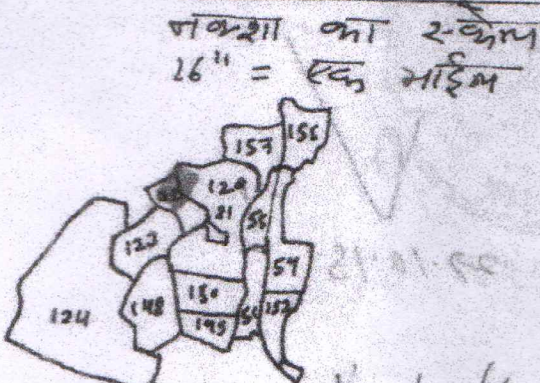 नकशा का स्केल
16" = एक माईल
157 156
120
21
56
123
57
124
148
150
152
149